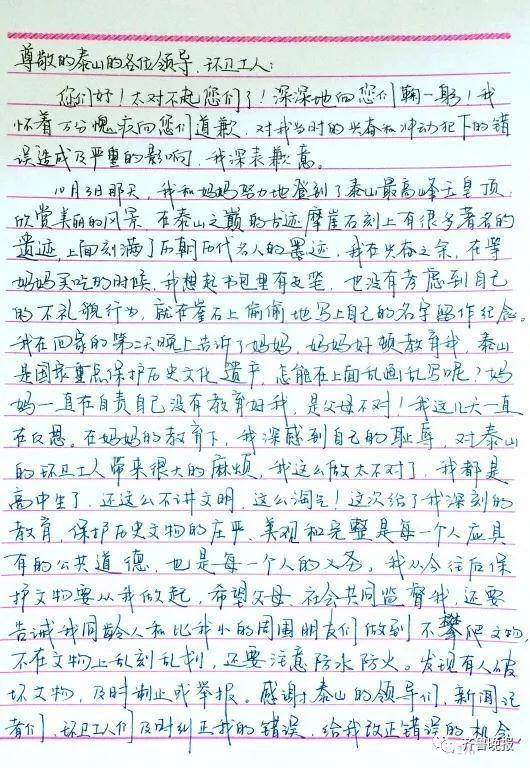 尊敬的泰山的各位领导、环卫工人:
您们好!太对不起您们了!深深地向您们鞠一躬!我
怀着万分愧疚向您们道歉,对我当时的兴奋和冲动犯下的错
误造成及严重的影响,我深表歉意。
10月3日那天,我和妈妈努力地登到了泰山最高峰玉皇顶,
欣赏美丽的风景,在泰山之巅的古迹摩崖石刻上有很多著名的
遗迹,上面刻满了历朝历代名人的墨迹,我在兴奋之余,在等
妈妈买吃的时候,我想起书包里有支笔,也没有考虑到自己
的不礼貌行为,就在崖石上偷偷地写上自己的名字留作纪念。
我在回家的第二天晚上告诉了妈妈,妈妈好顿教育我,泰山
是国家重点保护历史文化遗产,怎能在上面乱画乱写呢?妈
妈一直在自责自己没有教育好我,是父母不对!我这几天一直
在反思。在妈妈的教育下,我深感到自己的耻辱,对泰山
的环卫工人带来很大的麻烦,我这么做太不对了,我都是
高中生了,还这么不讲文明,这么淘气!这次给了我深刻的
教育,保护历史文物的庄严、美观和完整是每一个人应具
有的公共道德,也是每一个人的义务,我从今往后保
护文物要从我做起,希望父母、社会共同监督我,还要
告诫我同龄人和比我小的周围朋友们做到不攀爬文物,
不在文物上乱刻乱划,还要注意防水防火。发现有人破
坏文物,及时制止或举报。感谢泰山的领导们,新闻记
者们,环卫工人们及时纠正我的错误,给我改正错误的机会
齐鲁晚报